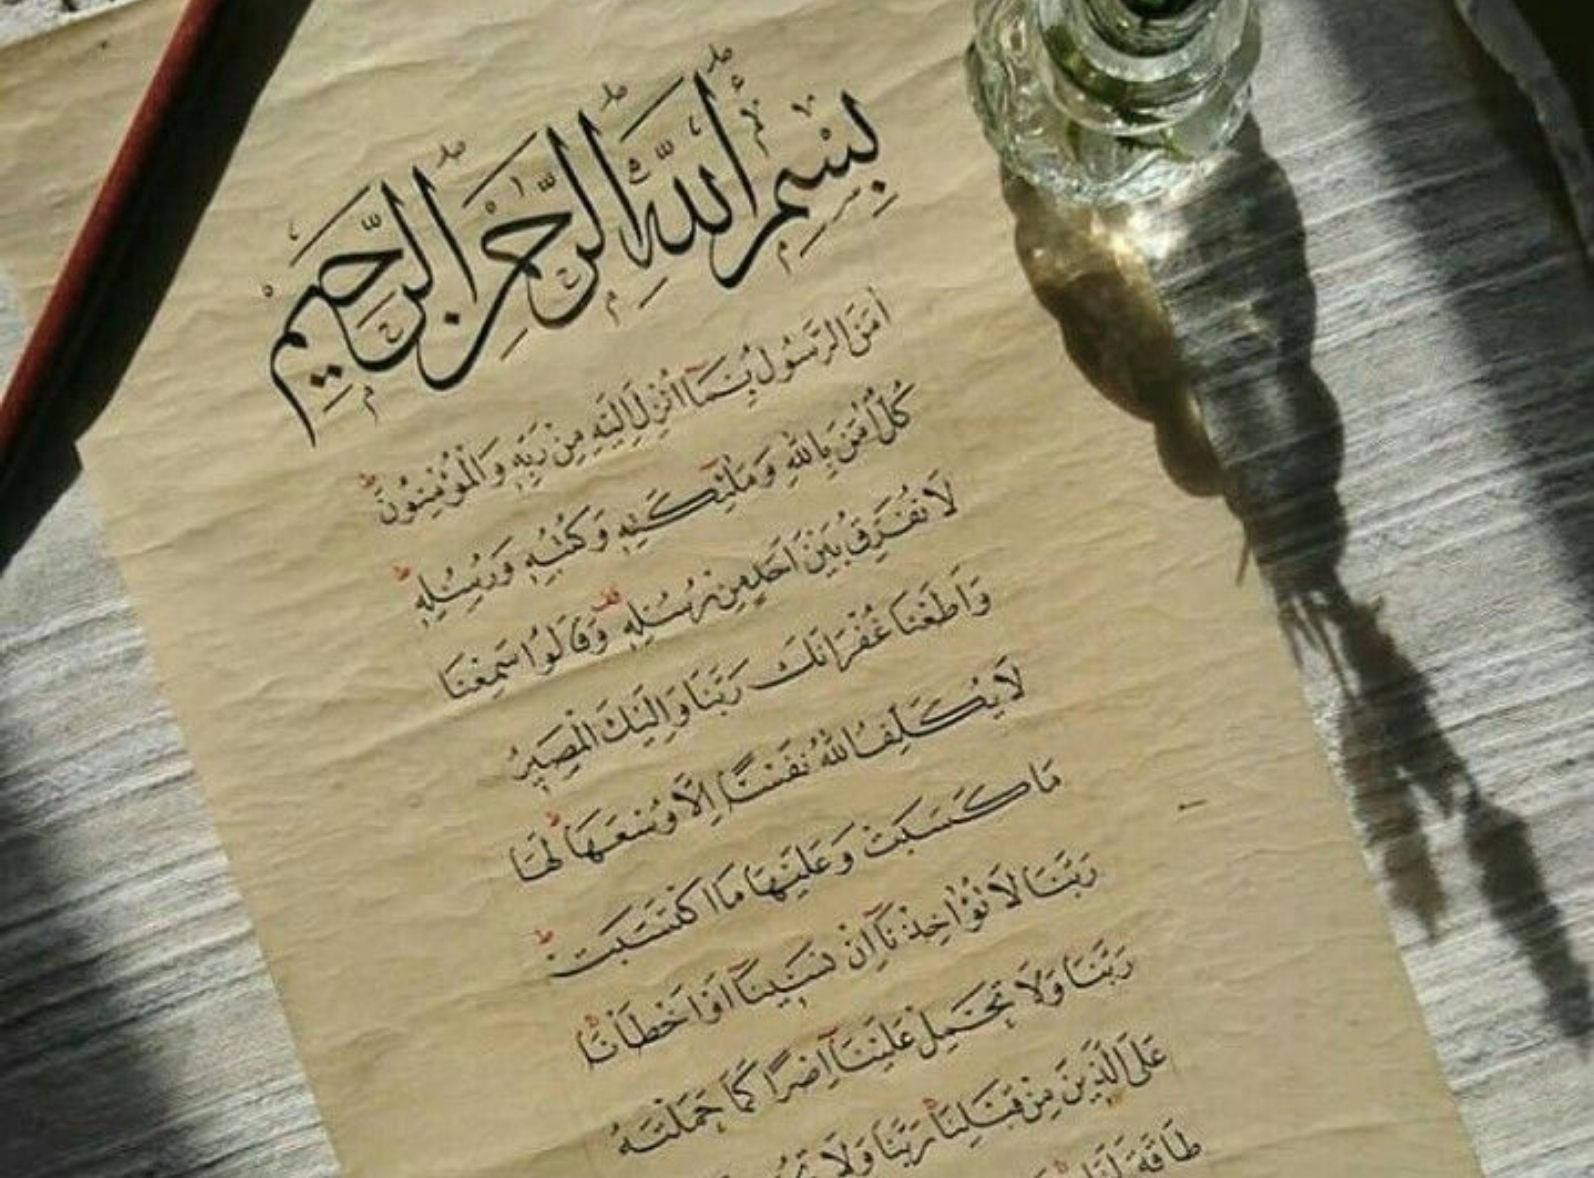 بِسْمِ اللّٰهِ الرَّحْمٰنِ الرَّحِيْمِ
اٰمَنَ الرَّسُولُ بِمَآ اُنْزِلَ اِلَيْهِ مِنْ رَبِّهٖ وَالْمُؤْمِنُونَۜ
كُلٌّ اٰمَنَ بِاللّٰهِ وَمَلٰٓئِكَتِهٖ وَكُتُبِهٖ وَرُسُلِهٖۜ
لَا نُفَرِّقُ بَيْنَ اَحَدٍ مِنْ رُسُلِهٖ۠ وَقَالُوا سَمِعْنَا
وَاَطَعْنَا غُفْرَانَكَ رَبَّنَا وَاِلَيْكَ الْمَصِيرُ
لَا يُكَلِّفُ اللّٰهُ نَفْسًا اِلَّا وُسْعَهَاۜ لَهَا
مَا كَسَبَتْ وَعَلَيْهَا مَا اكْتَسَبَتْۜ
رَبَّنَا لَا تُؤَاخِذْنَٓا اِنْ نَسِينَٓا اَوْ اَخْطَأْنَاۚ
رَبَّنَا وَلَا تَحْمِلْ عَلَيْنَٓا اِصْرًا كَمَا حَمَلْتَهُ
عَلَى الَّذِينَ مِنْ قَبْلِنَاۚ رَبَّنَا وَلَا
طَاقَةَ لَنَا